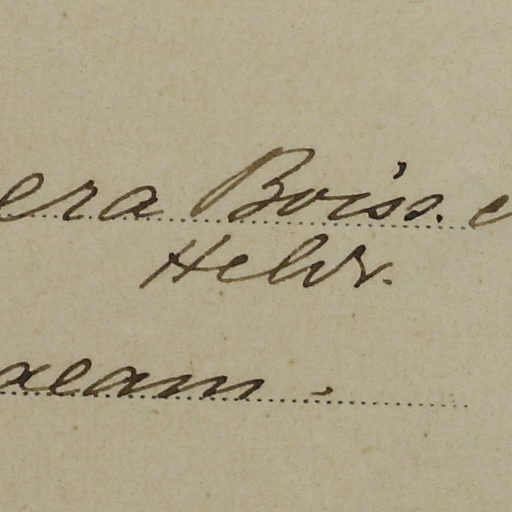 era Boiss. e
Heldr.
aeam.